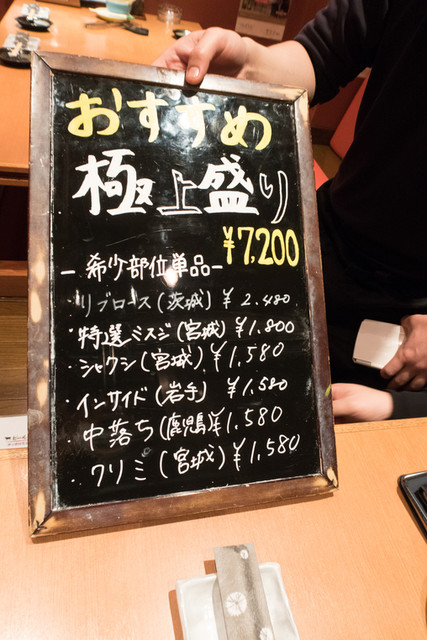 おすすめ
極上盛り
¥7.200
- 希少部位単品 -
・リブロース(茨城) ¥2.480
・特選ミスジ(宮城) ¥1.800
・シャクシ(宮城) ¥1.580
・インサイド(岩手) ¥1.580
・中落ち(鹿児島) ¥1.580
・クリミ(宮城) ¥1.580